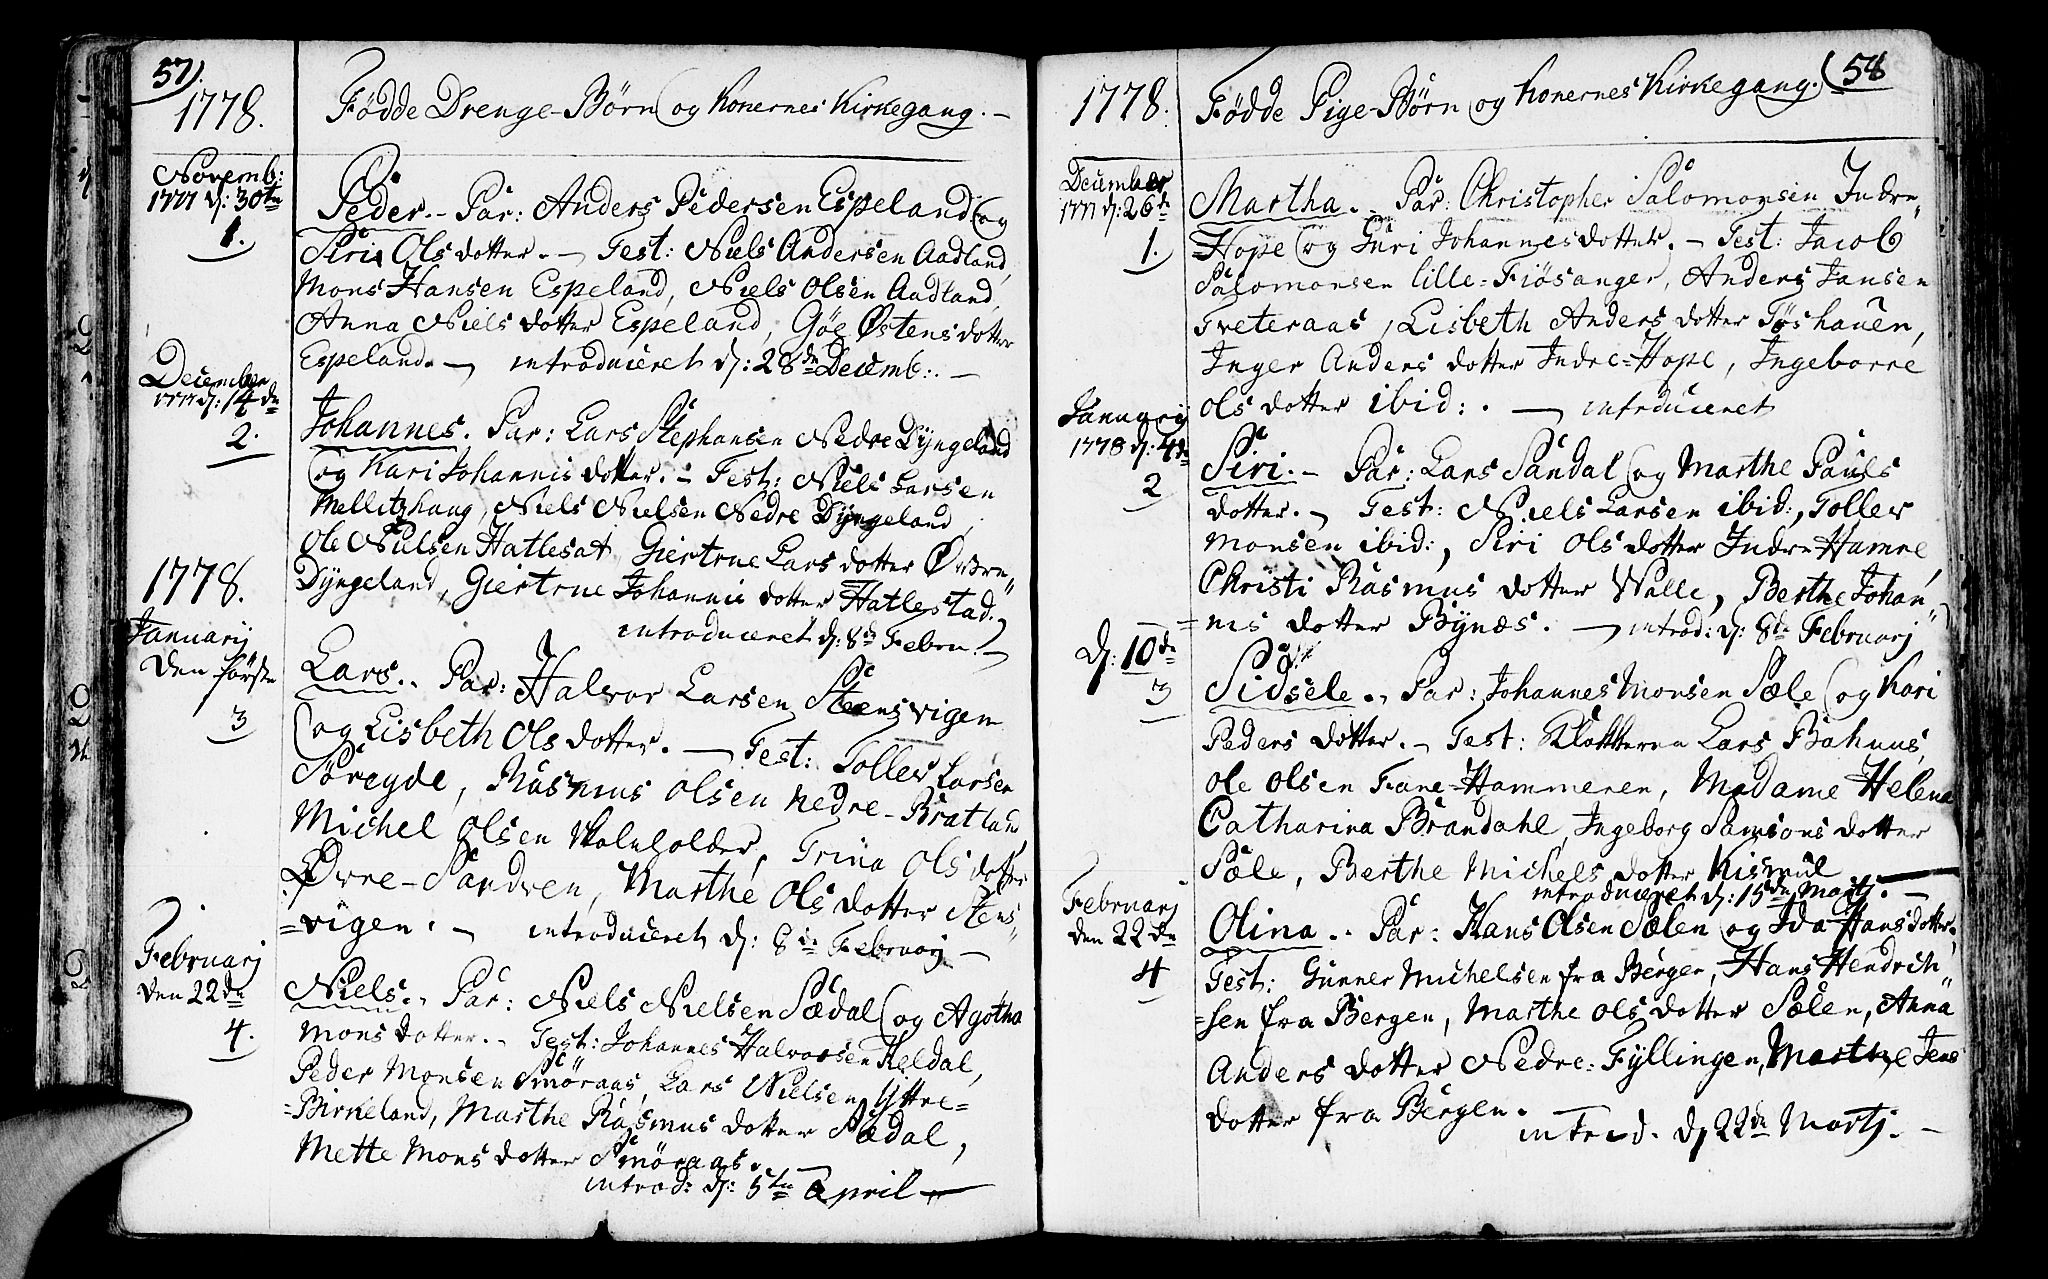 57).
1778.
Födde Drenge-Börn (og Konernes Kirkegang. -
Novemb:
1777 d: 30te
1.
Peder. - Par: Anders Pedersen Espeland (og
Siri Olsdotter. - Test: Niels Andersen Aadland,
Mons Hansen Espeland, Niels Olsen Aadland,
Anna Niels dotter Espeland, Göe Østens dotter
Espeland. - introduceret d: 28de Decemb: . -
December
1777 d: 14de
2.
Johannes. Par: Lars Stephansen Nedre Dÿngeland
(og Kari Johannis dotter. - Test: Niels Larsen
Mellitzhaug, Niels Nielsen Nedre Dÿngeland,
Ole Nielsen Hatlesat, Giertrue Lars dotter Øvre"
Dÿngeland, Giertrue Johannis dotter Hatlestad.
introduceret d: 8de Febru: -
1778.
Januarij
den förste
3
Lars. . Par: Halvor Larsen Steensvigen
(og Lisbeth Olsdotter. - Test: Toller Larsen
Söreyde, Rasmus Olsen nedre-Bratland,
Michel Olsen Skoleholder, Trina Ols dotter
Øvre-Sandven, Marthe Ols dotter Stens"
=vigen. - introduceret d: 8de Februarj -
Februarj
den 22de
4.
Niels. . Par: Niels Nielsen Sædal (og Agotha
Mons dotter. - Test: Johannes Halvorsen Keldal,
Peder Monsen Smöraas, Lars Nielsen Yttre=
=Birkeland, Marthe Rasmus dotter Sædal,
Mette Mons dotter Smöraas. -
introd: d: 5te April -
(58
1778.
Födde Pige-Börn (og Konernes Kirkegang.
December
1777 d: 26de
1.
Martha. . Par: Christopher Salomonsen Indre"
Hope (og Guri Johannesdotter. - Test: Jacob
Salomonsen lille=Fiösanger, Anders Jansen
Tveteraas, Lisbeth Anders dotter Töshauen,
Inger Anders dotter Indre=Hope, Ingeborre
Ols dotter ibid: . - introduceret
Januarij
1778 d: 4de
2
Siri. - Par: Lars Sandal (og Marthe Pauls
dotter. - Test: Niels Larsen ibid:, Toller
Monsen ibid:, Siri Ols dotter Indre Hamre,
Christi Rasmus dotter Walle, Berthe Johan"
=nis dotter Bÿnæs. - introd: d: 8de Februarj
d: 10de
3
Sidsele. . Par: Johannes Monsen Sæle (og Kari
Peders dotter. - Test: Klokkeren Lars Bahuus,
Ole Olsen Fane-Hammeren, Madame Helena
Catharina Brandahl, Ingeborg Samsons dotter
Sæle, Berthe Michels dotter Kismul
introduceret d: 15de Martj. -
Februarj
den 22de
4
Olina. . Par: Hans Olsen Sælen (og Ida Hans dotter.
Test: Gunner Michelsen fra Bergen, Hans Hendrich"
=sen fra Bergen, Marthe Ols dotter Sælen, Anna
Anders dotter Nedre=Fyllingen, Marthe Jens
dotter fra Bergen.
introd. d: 22de Martj. -